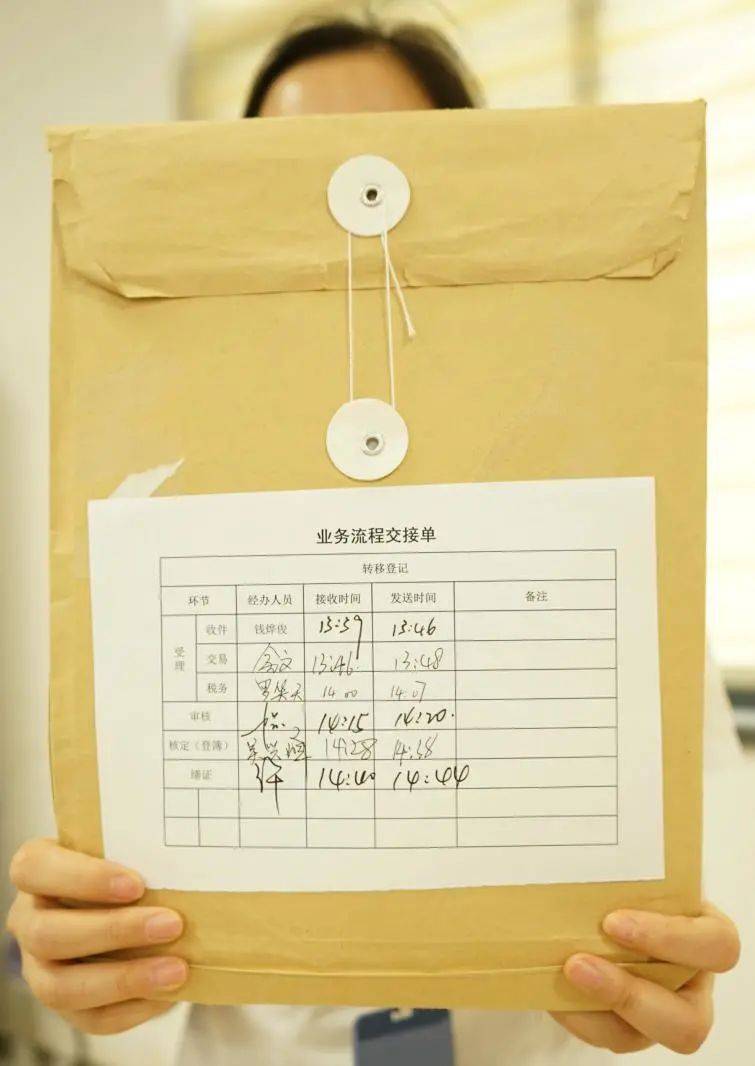 业务流程交接单
转移登记
环节 经办人员 接收时间 发送时间 备注
受理 收件 钱烨俊 13:39 13:46
交易 13:46 13:48
税务 14:00 14:07
审核 14:15 14:20
核定（登簿） 14:28 14:38
缮证 14:40 14:44